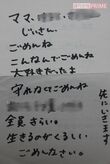 ママ、
じいさん
ごめんね
こんなんでごめんね
大好きだったよ
守れなくてごめんね
全員さらい。
生きるのがくるしい
ごめんなさい。
先にいきます。